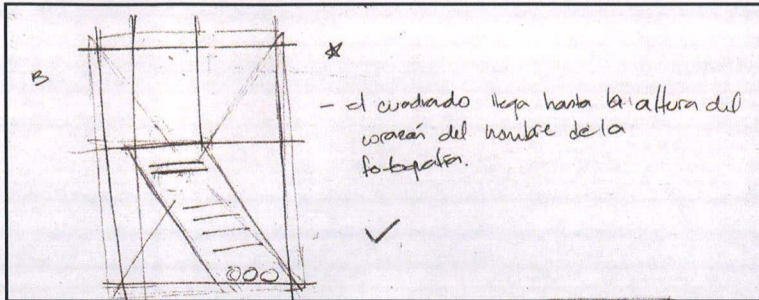 B
- el cuadrado llega hasta la altura del
corazón del hombre de la
fotografía.